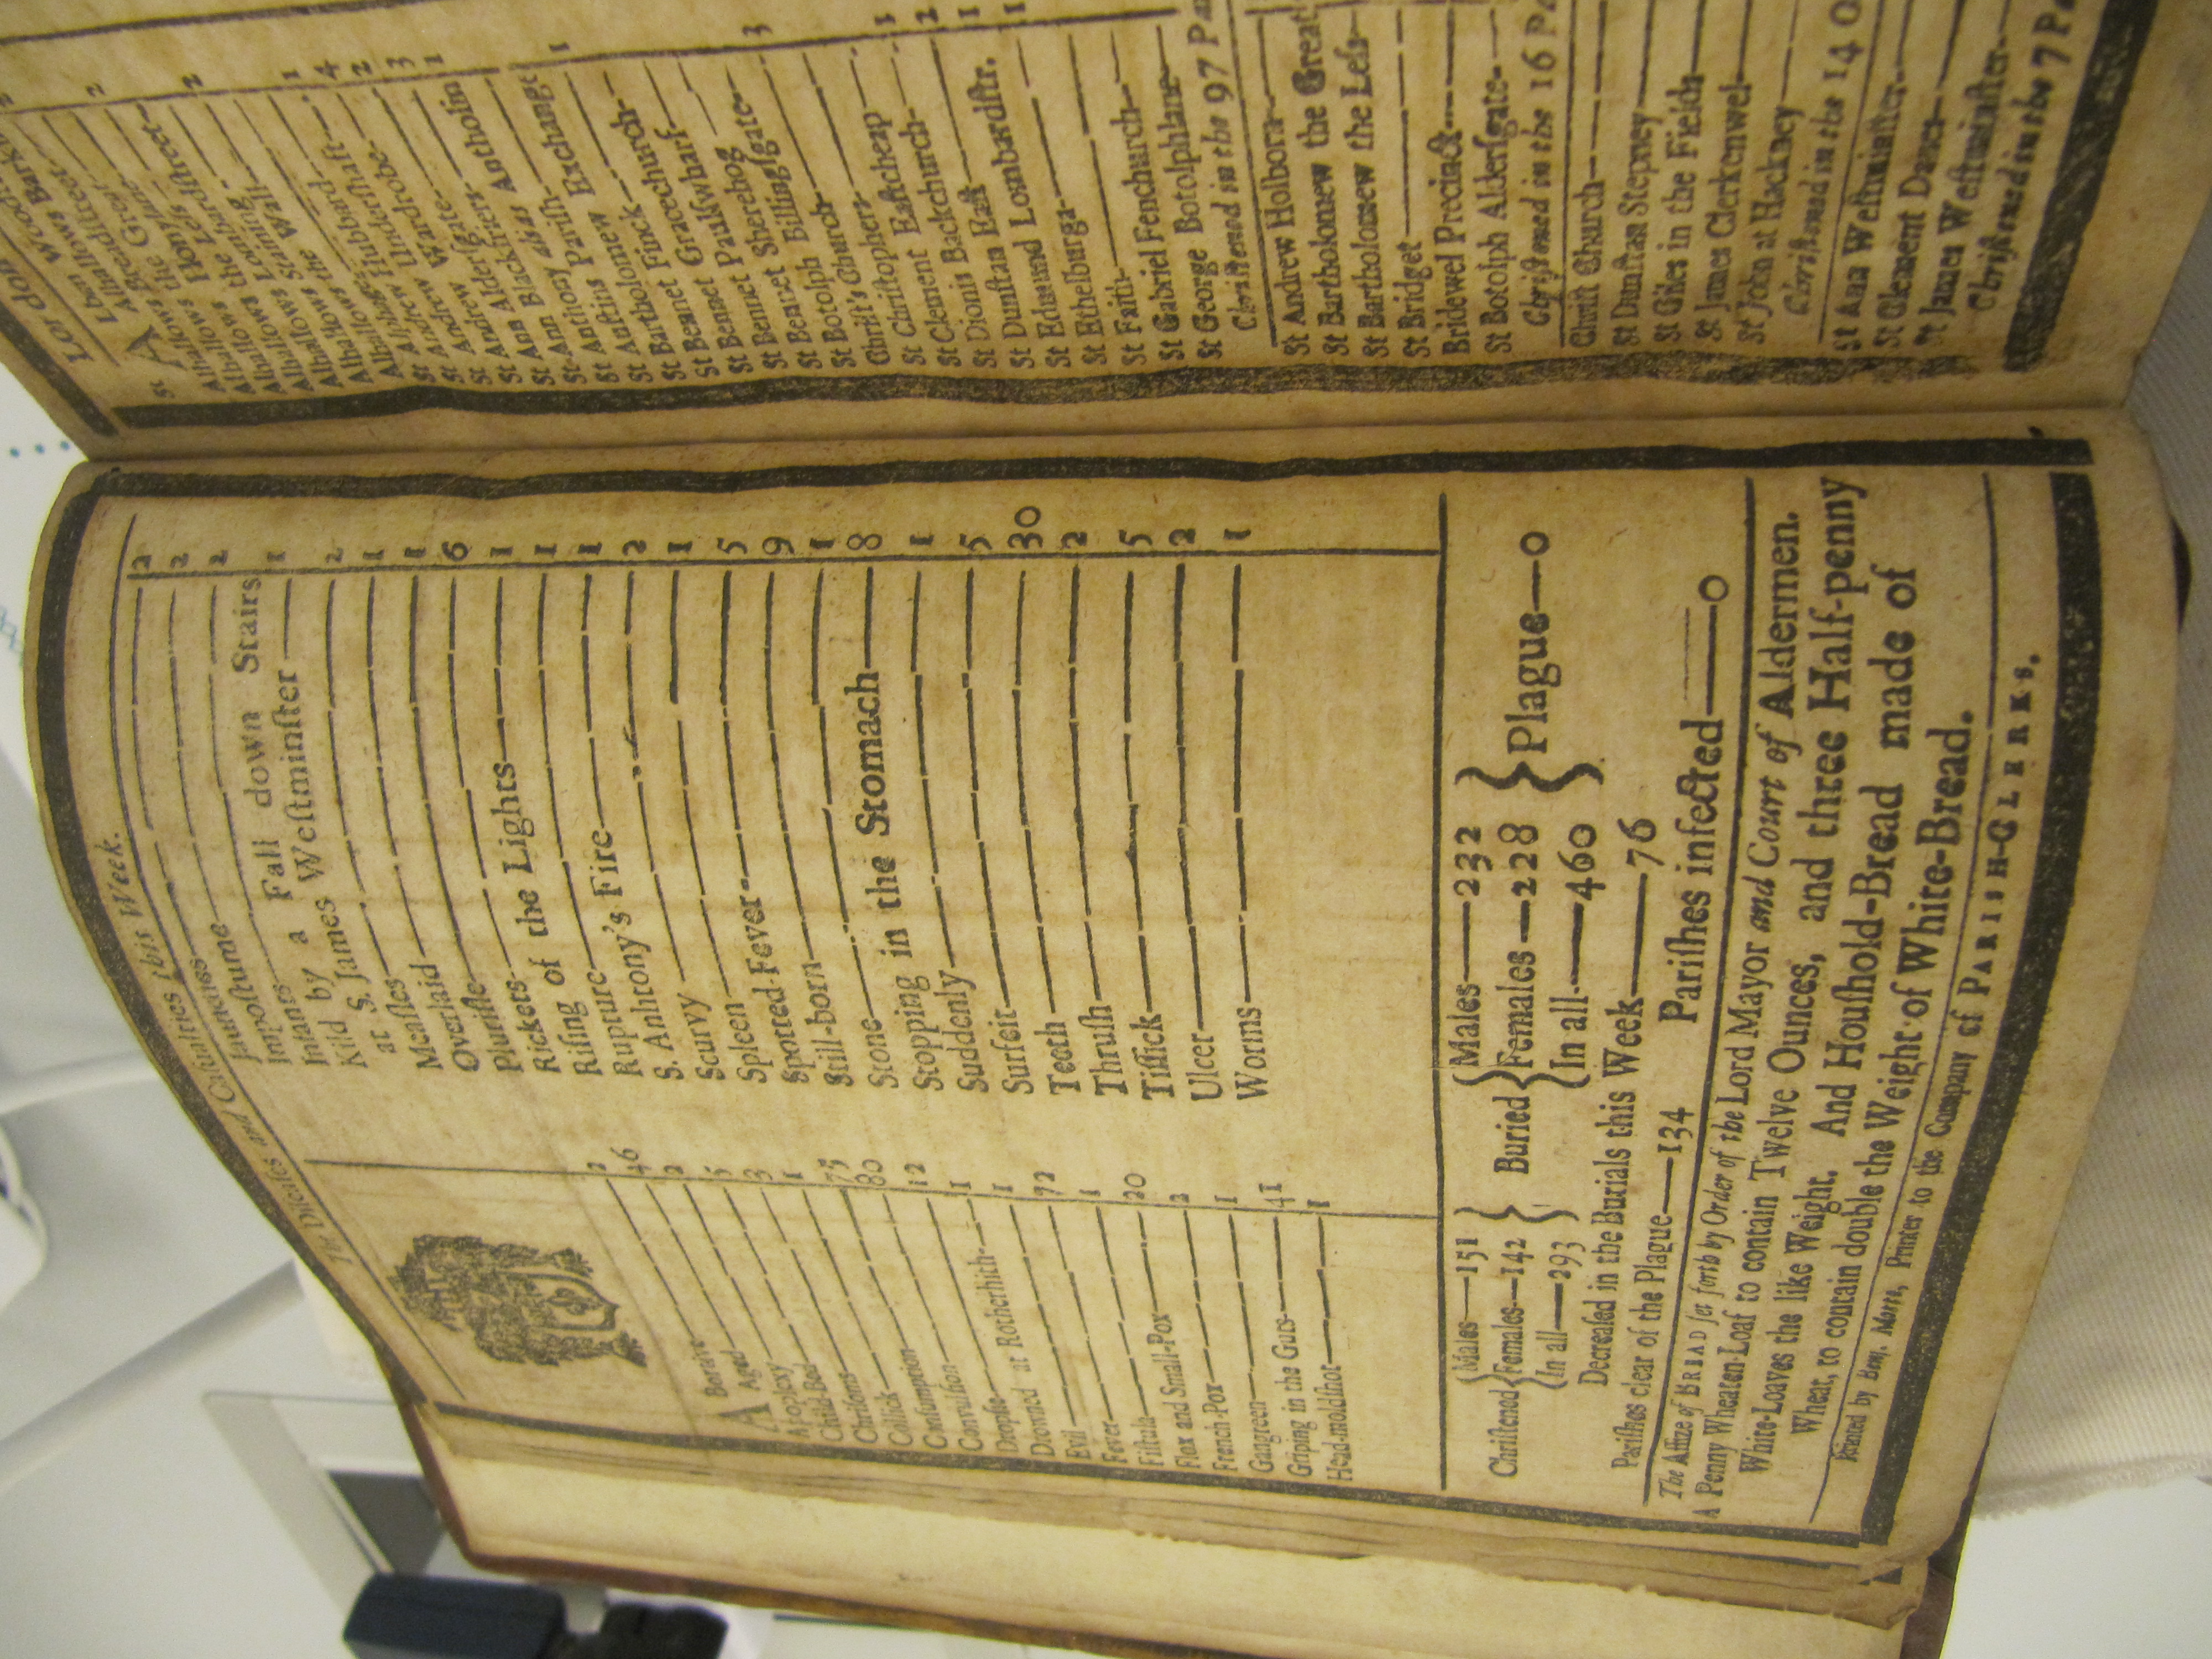 The Diseases and Casualties this Week.
ABortive 2
Aged 46
Apoplexy 2
Child-Bed 5
Chrisoms 3
Collick 1
Consumption 75
Convulsion 80
Dropsie 12
Drowned at Rotherhith 1
Evil 1
Fever 72
Fistula 1
Flox and Small-Pox 20
French-Pox 2
Gangreen 1
Griping in the Guts 41
Head-moldshot 1
Jaundies 2
Impostume 2
Infants 2
Kild by a Fall down Stairs
at S. James Westminster 1
Measles 2
Overlaid 1
Plurisie 1
Rickets 6
Rising of the Lights 1
Rupture 1
S. Anthony's Fire 1
Scurvy 2
Spleen 1
Spotted-Fever 5
Still-born 9
Stone 1
Stopping in the Stomach 8
Suddenly 1
Surfeit 5
Teeth 30
Thrush 2
Tissick 5
Ulcer 2
Worms 1
Christened { Males—151 Females—142 In all—293 } Buried { Males—232 Females—228 In all—460 } Plague—0
Decreased in the Burials this Week—76
Parishes clear of the Plague—134 Parishes infected—0
The Assize of BREAD set forth by Order of the Lord Mayor and Court of Aldermen.
A Penny Wheaten-Loaf to contain Twelve Ounces, and three Half-penny
White-Loaves the like Weight. And Houshold-Bread made of
Wheat, to contain double the Weight of White-Bread.
Printed by Benj. Motte, Printer to the Company of PARISH-CLERKS.
St ALban Woodstreet
Alhallows Barkin 2
Alhallows Breadstreet
Alhallows the Great 2
Alhallows Honylane
Alhallows the Less
Alhallows Lombardstreet 2
Alhallows Staining
Alhallows the Wall 1
Alphage 4
St Andrew Hubbard 2
St Andrew Undershaft 3
St Andrew Wardrobe 1
St Ann Aldersgate
St Ann Blackfriers
St Antholin alias Anthonlin
St Anthony Parish
St Austins
St Bartholomew Exchange 1
St Bennet Finck
St Bennet Gracechurch
St Bennet Paulswharf
St Bennet Sherehog
St Botolph Billingsgate
Christ's Church 3
St Christophers
St Clement Eastcheap
St Dionis Backchurch 1
St Dunstan East 2
St Edmund Lombardstr. 1
St Ethelburga 1
St Faith
St Gabriel Fenchurch
St George Botolphlane
Christened in the 97
St Andrew Holborn
St Bartholomew the Great
St Bartholomew the Less
St Bridget
Bridewel Precinct
St Botolph Aldersgate
Christened in the 16
Christ Church
St Dunstan Stepney
St Giles in the Fields
St James Clerkenwel
St John at Hackney
Christened in the 14
St Ann Westminster
St Clement Danes
St James Westminster
Christened in the 7